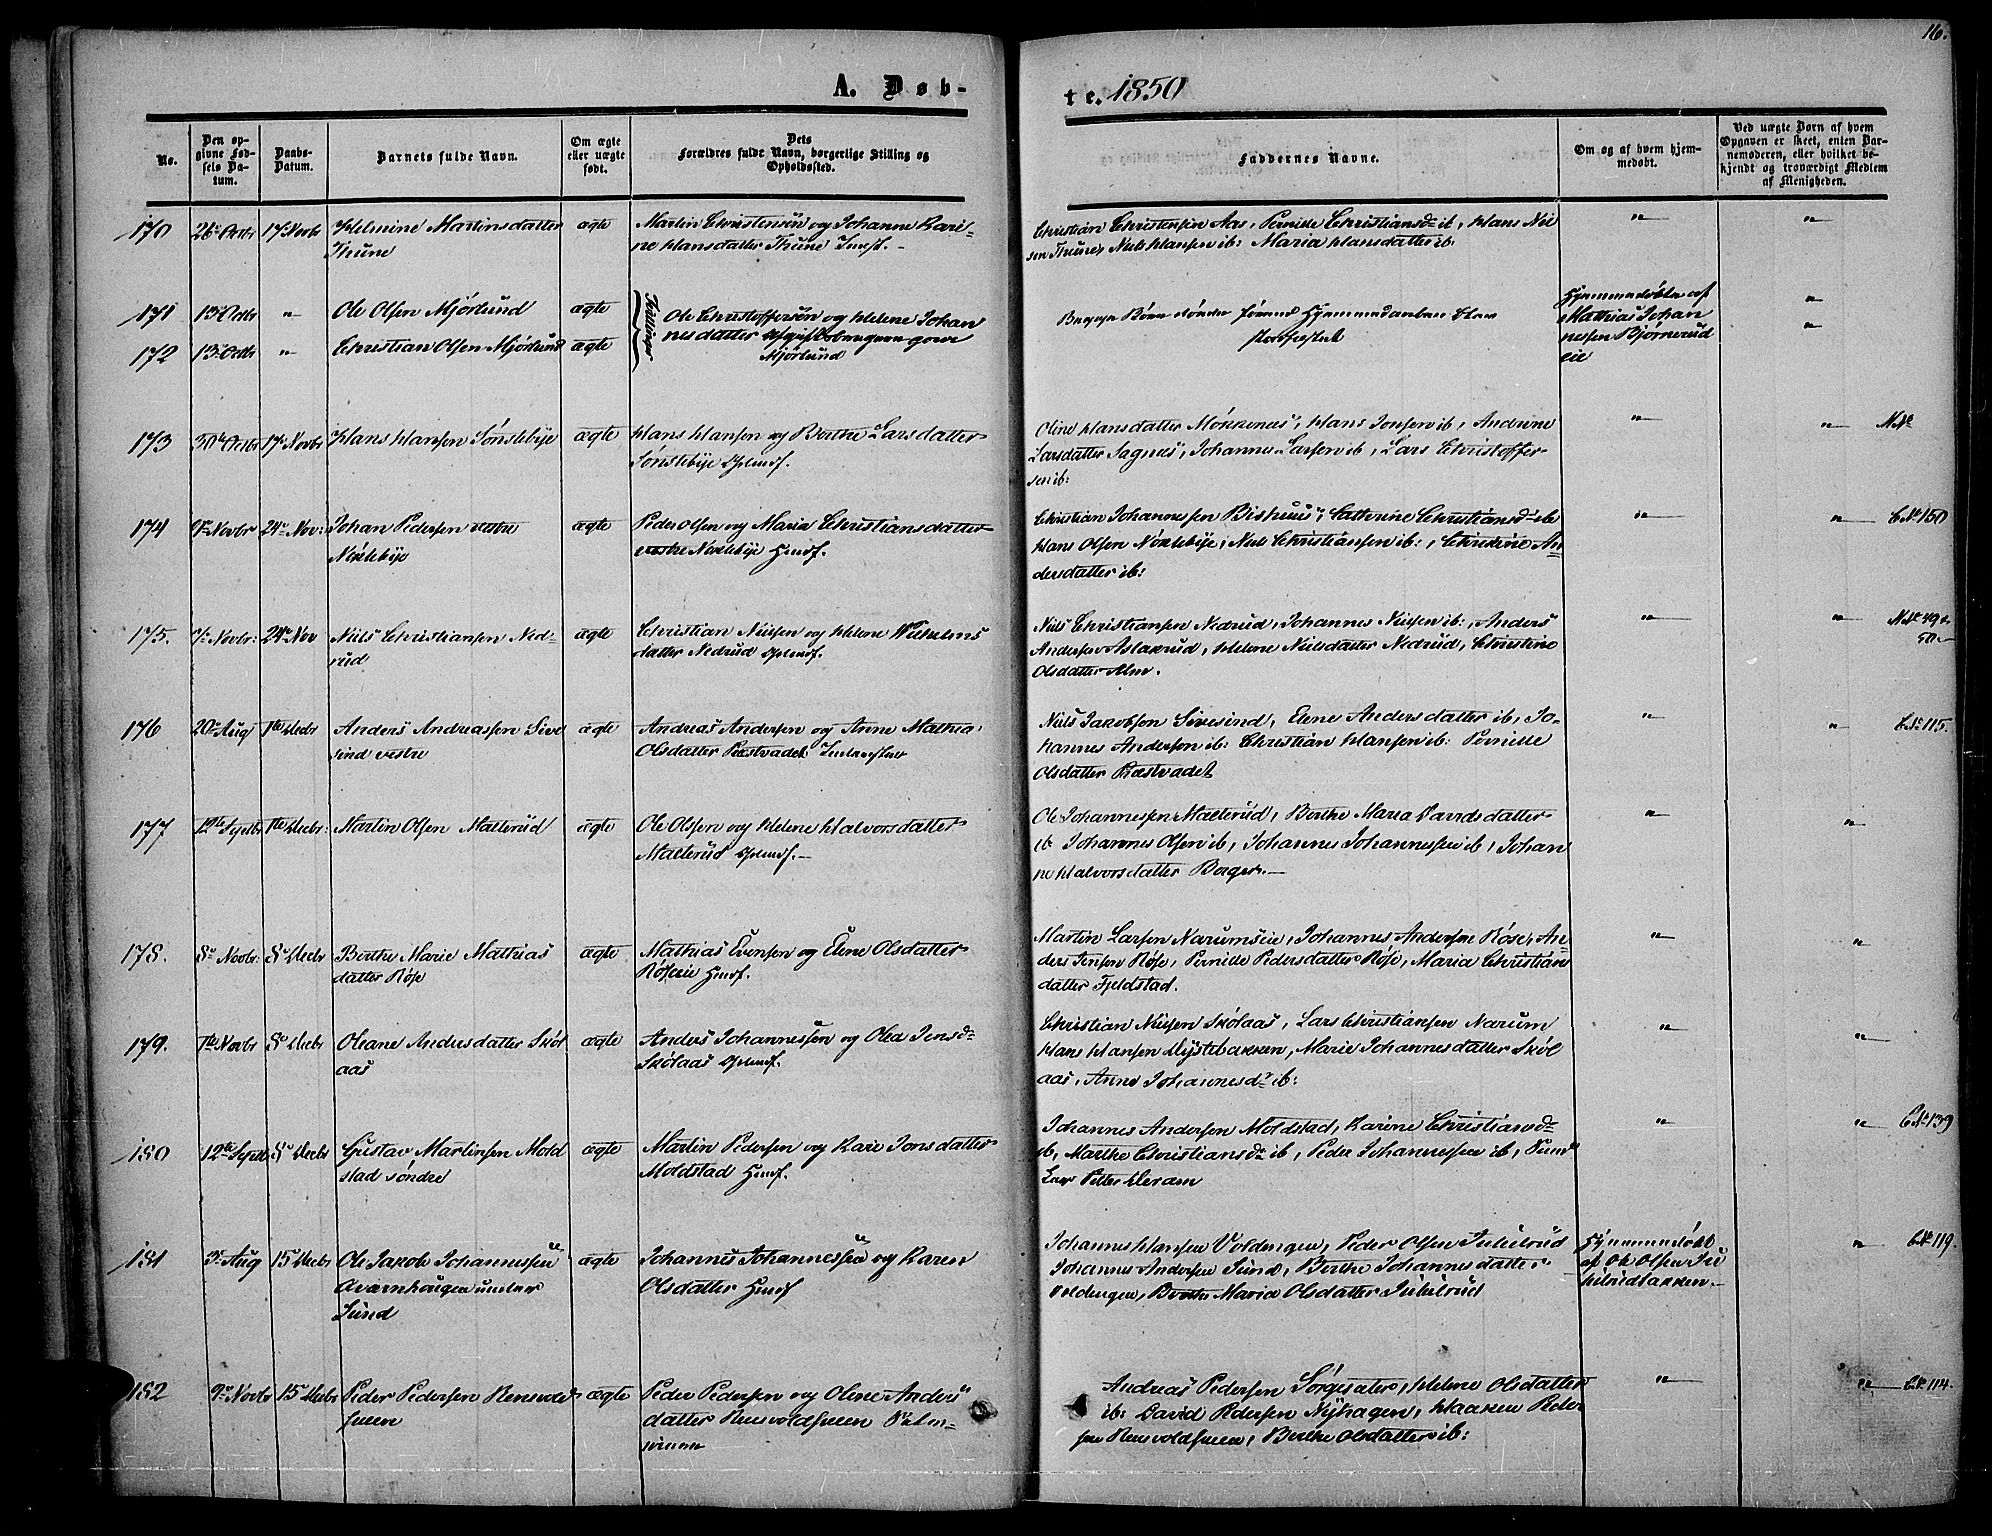 16.
A. Døb-
te. 1850
No.
Den op-
givne Fød-
sels Da-
tum.
Daabs-
Datum.
Barnets fulde Navn.
Om ægte
eller uægte
født.
Dets
Forældres fulde Navn, borgerlige Stilling og
Opholdssted.
Faddernes Navne.
Om og af hvem hjem-
medøbt.
Ved uægte Børn af hvem
Opgaven er skeet, enten Bar-
nemoderen, eller hvilket be-
kjendt og troværdigt Medlem
af Menigheden.
170 26 Octbr 17 Novbr Helmine Martinsdatter
Thune
ægte
Martin Christensen og Johanne Kari-
ne Hansdatter Thune Inds.
Christian Christensen Aas, Pernille Christiansd ib, Hans Niel
sen Thune, Niels Hansen ib: Maria Hansdatter ib:
" "
171 13 Octbr " Ole Olsen Mjørlund ægte
172 13 Octbr " Christian Olsen Mjørlund ægte
Tvillinger
Ole Christoffersen og Helene Johan
nesdatter
Mjørlund
Begge Børn døde førend Hjemmedaaben blev
stadfæstet
Hjemmedøbte af
Mathias Johan
nessen Bjørnerud
eie
"
"
173 30 Octbr 17 Novbr Hans Hansen Sønsteby ægte
Hans Hansen og Berthe Larsdatter
Sønsteby
Oline Hansdatter Møkkenes, Hans Jonsen ib, Andrine
Larsdatter Sagnes, Johannes Larsen ib, Lars Christoffer-
sen ib:
" "
174 Novbr 24 Nov: Johan Pedersen vestre
Nøkleby
ægte
Peder Olsen og Maria Christiansdatter
vestre Nøkleby Huusf.
Christian Johannessen Bishuus, Catherine Christiansd ib
Hans Olsen Nøkleby, Niels Christiansen ib:, Christine An-
dersdatter ib:
" " C No 150
175. Novbr: 24 Nov Niels Christiansen Ned-
rud
ægte
Christian Nielsen og Helene Wilhelms
datter Nedrud
Niels Christiansen Nedrud, Johannes Nielsen ib:, Anders
Andersen Aslakrud, Helene Nielsdatter Nedrud, Christine
Olsdatter Alm.
" " 49 &
50
176 20 Aug 1ste Decbr Anders Andreassen Sive
sind vestre
ægte
Andreas Andersen og Anne Mathia
Olsdatter Præstvadet
Niels Jakobsen Sivesind, Elene Andersdatter ib, Jo-
hannes Andersen ib: Christian Hansen ib: Pernille
Olsdatter Præstvadet
" " C No 115.
177 12te Septbr 1ste Decbr: Martin Olsen Mallerud ægte
Ole Olsen og Helene Halvorsdatter
Mallerud
Ole Johannessen Mallerud, Berthe Maria Davidsdatter
ib Johannes Olsen ib, Johannes Johannessen ib, Johan
ne Halvorsdatter Berger.
" "
178. 8 Novbr: 8 Decbr Berthe Marie Mathias
datter Røse
ægte
Mathias Evensen og Elene Olsdatter
Røseeie Huusf.
Martin Larsen Narumseie, Johannes Andersen Røse, An-
ders Jensen Røse, Pernille Pedersdatter Røse, Maria Christian
datter Fjeldstad.
" "
179. 7te Novbr 8 Decbr Oleane Andersdatter Skøl
aas
ægte
Anders Johannessen og Olea Jensd
Skølaas
Christian Nielsen Skølaas, Lars Christiansen Narum
Hans Hansen Dystebakken, Marie Johannesdatter Skøl
aas, Anne Johannesd ib:
" "
180 12te Septbr 8 Decbr Gustav Martinsen Mold
stad søndre
ægte
Martin Pedersen og Kari Jonsdatter
Moldstad Huusf.
Johannes Andersen Moldstad, Karine Christiansd
ib, Marthe Christiansd ib, Peder Johannessen ib,
Petter
" " C No 139
181 3 Aug 15 Decbr Ole Jakob Johannessen
Qværnhaugen under
Sund
ægte
Johannes Johannessen og Karen
Olsdatter Huusf
Johannes Hansen Voldengen, Peder Olsen Julielrud
Johannes Andersen Sund, Berthe Johannesdatter
Voldengen, Berthe Maria Olsdatter Julielrud
Hjemmedøbt
af Ole Olsen Ju
lielrudbakken.
" C No 119.
182 9 Novbr 15 Decbr Peder Pedersen Renvold
sveen
ægte
Peder Pedersen og Oline Anders
datter Renvoldsveen
Andreas Pedersen Sørgesæter, Helene Olsdatter
ib: David Pedersen Nyhagen, Haaken Peder
sen Renvoldsveen, Berthe Olsdatter ib:
" " C No 114.